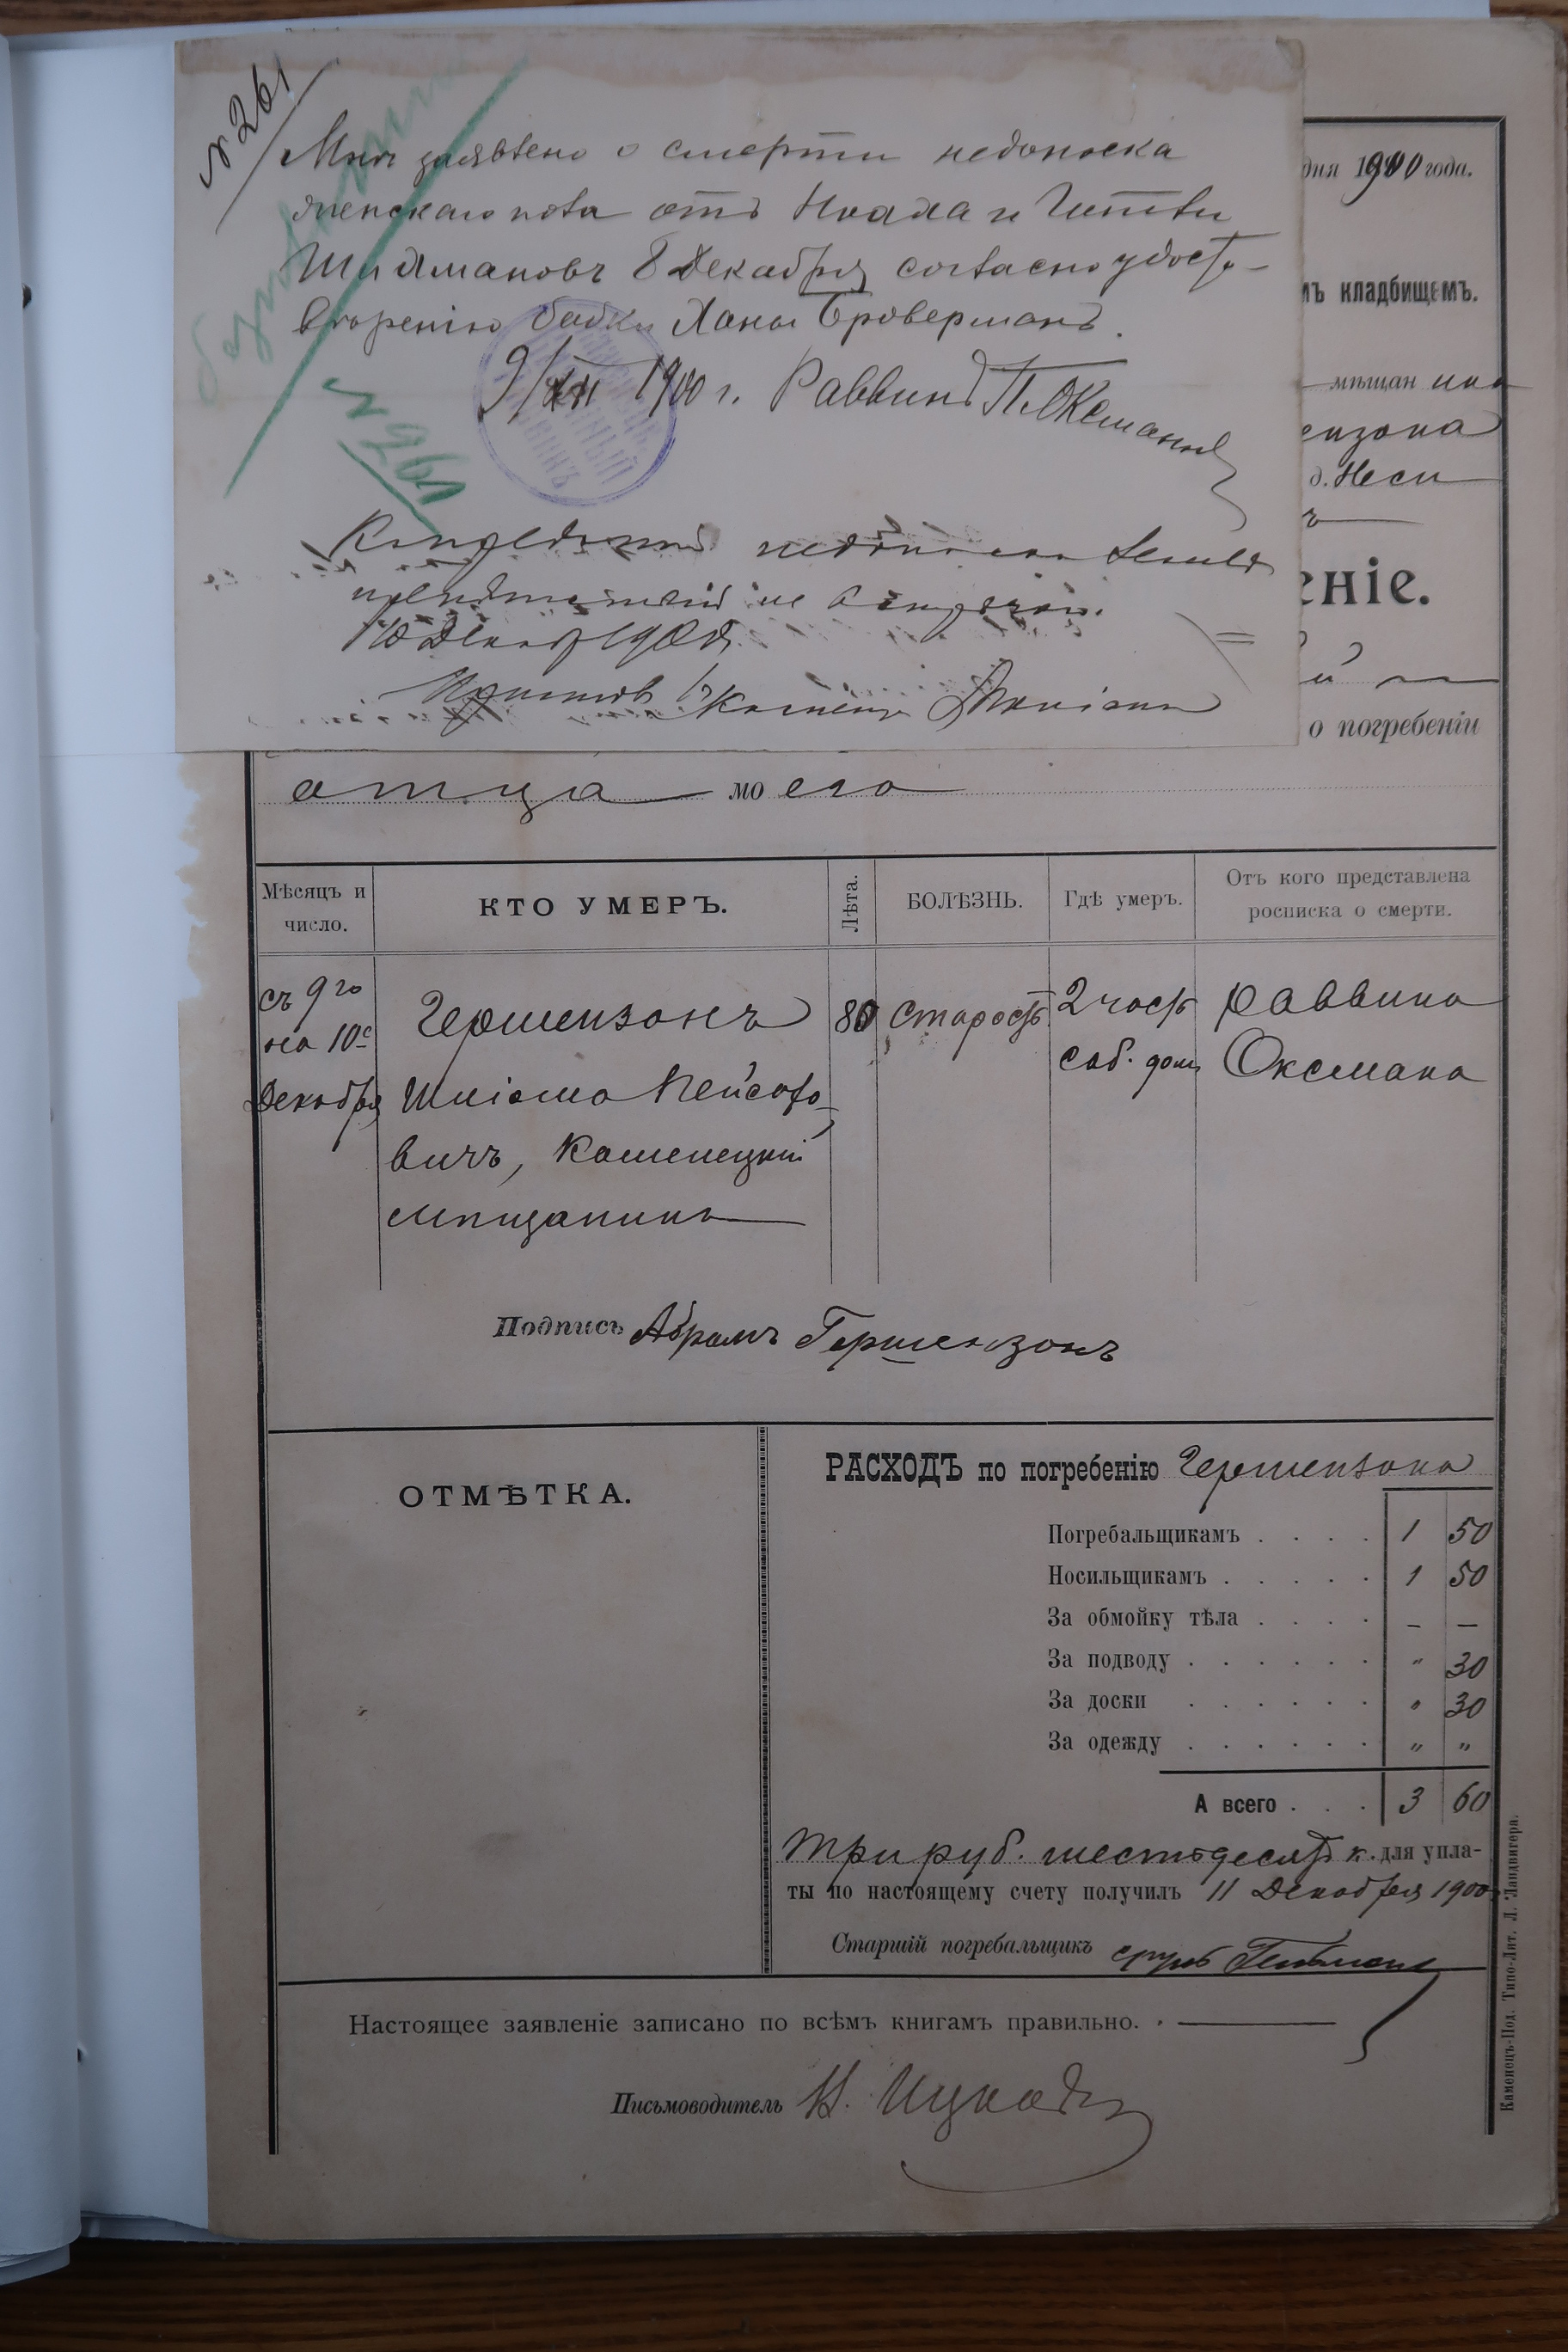 № 261
Мнѣ заявлено о смерти недоноска
женскаго пола отъ Иоала и Гитли
Шидмановъ 8 Декабря согласно удосто-
вѣренію бабки Ханы Броверманъ.
9/XII 1900 г. Раввинъ П. Оксманъ
№ 261
недоноска земле
препятствій не встрѣчаю.
10 Декабр 1900
дня 1900 года.
мъ кладбищемъ.
мѣщанина
ензона
д. Неси
еніе.
й
о погребеніи
отца моего
Мѣсяцъ и число.
КТО УМЕРЪ.
Лѣта.
БОЛѢЗНЬ.
Гдѣ умеръ.
Отъ кого представлена росписка о смерти.
съ 9го
на 10е
Декабря
Гершензонъ
Шліома Пейсахо-
вичъ, Каменецкій
мѣщанинъ
80
Старость
2 часть
соб. домъ
раввина
Оксмана
Подпись Абрамъ Гершензонъ
ОТМѢТКА.
РАСХОДЪ по погребенію Гершензона
Погребальщикамъ . . . . 1 50
Носильщикамъ . . . . . 1 50
За обмойку тѣла . . . . – –
За подводу . . . . . . " 30
За доски . . . . . . " 30
За одежду . . . . . . " "
А всего . . . 3 60
Три руб. шестьдесятъ к. для упла-
ты по настоящему счету получилъ 11 Декабря 1900
Старшій погребальщикъ
Настоящее заявленіе записано по всѣмъ книгамъ правильно.
Письмоводитель
Каменецъ-Под. Типо-Лит. Л. Ландвигера.